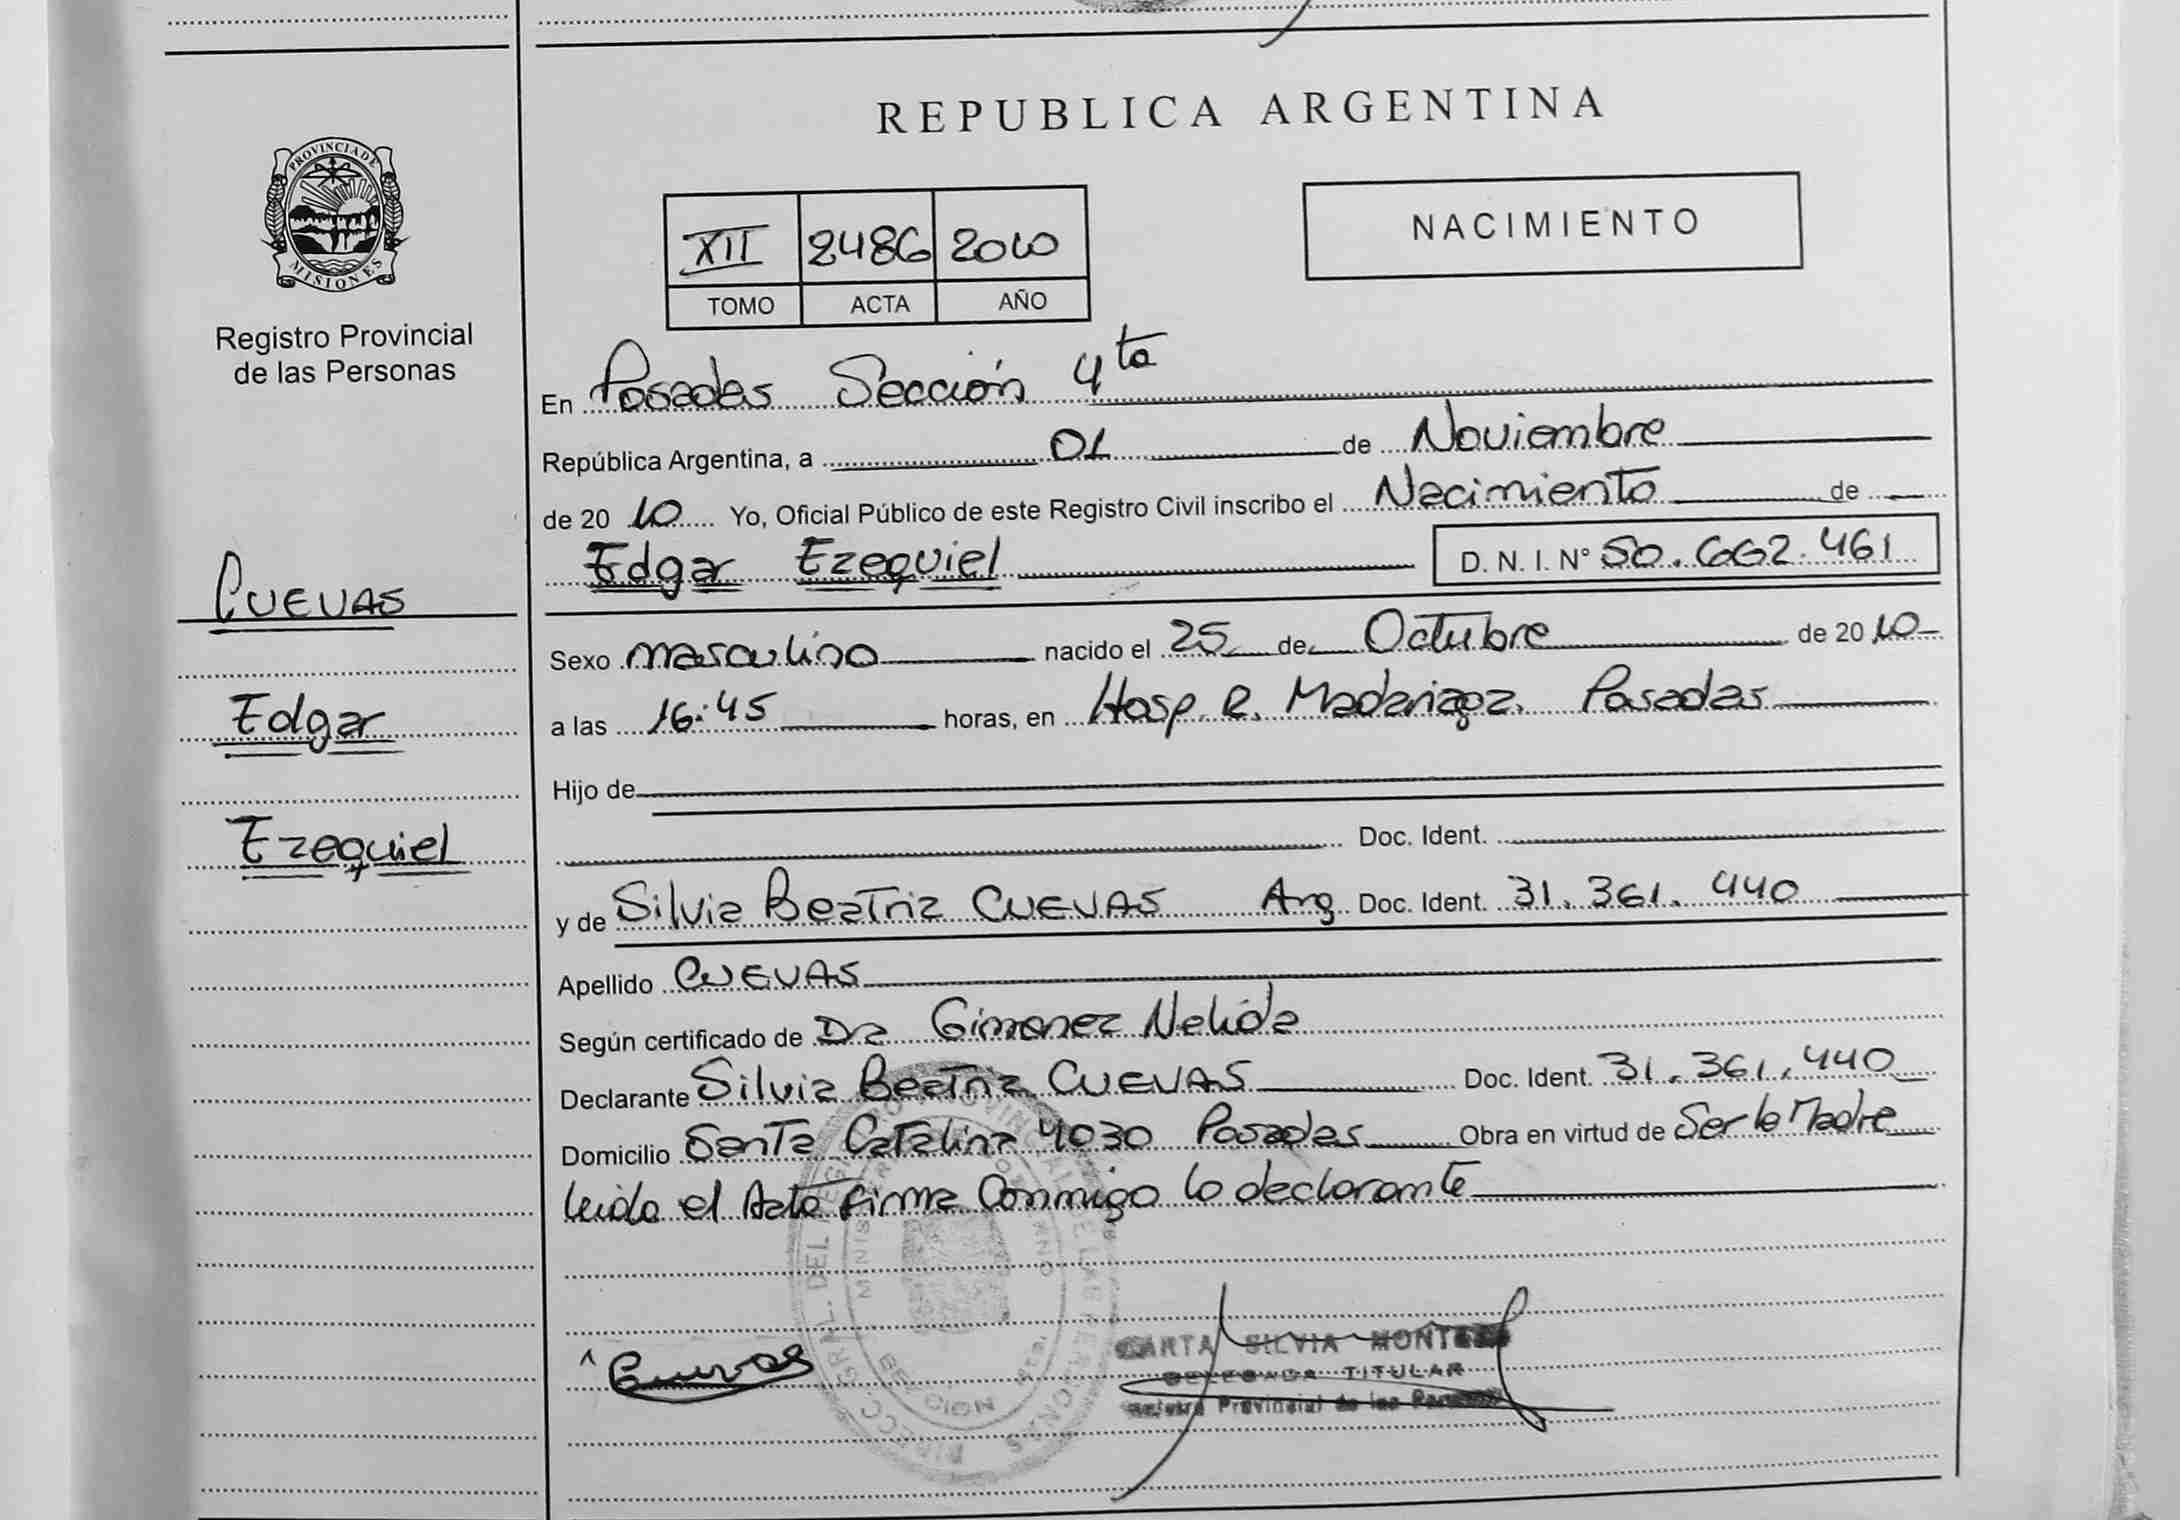 PROVINCIA DE
MISIONES
Registro Provincial
de las Personas
CUEVAS
Edgar
Ezequiel
REPUBLICA ARGENTINA
XII 2486 2010
TOMO ACTA AÑO
NACIMIENTO
En Posadas Sección 4ta
República Argentina, a 01 de Noviembre
de 20 10 Yo, Oficial Público de este Registro Civil inscribo el Nacimiento de
Edgar Ezequiel D. N. I. N° 50.662.461
Sexo masculino nacido el 25 de Octubre de 20 10
a las 16:45 horas, en Hosp. R. Madariaga. Posadas
Hijo de
Doc. Ident.
y de Silvia Beatriz CUEVAS Arg. Doc. Ident. 31.361.440
Apellido CUEVAS
Según certificado de Dra Gimenez Nelida
Declarante Silvia Beatriz CUEVAS Doc. Ident. 31.361.440
Domicilio Santa Catalina 4030 Posadas Obra en virtud de Ser la Madre
leida el Acta firma Conmigo la declarante
Cuevas
SILVIA
TITULAR
Provincial de las